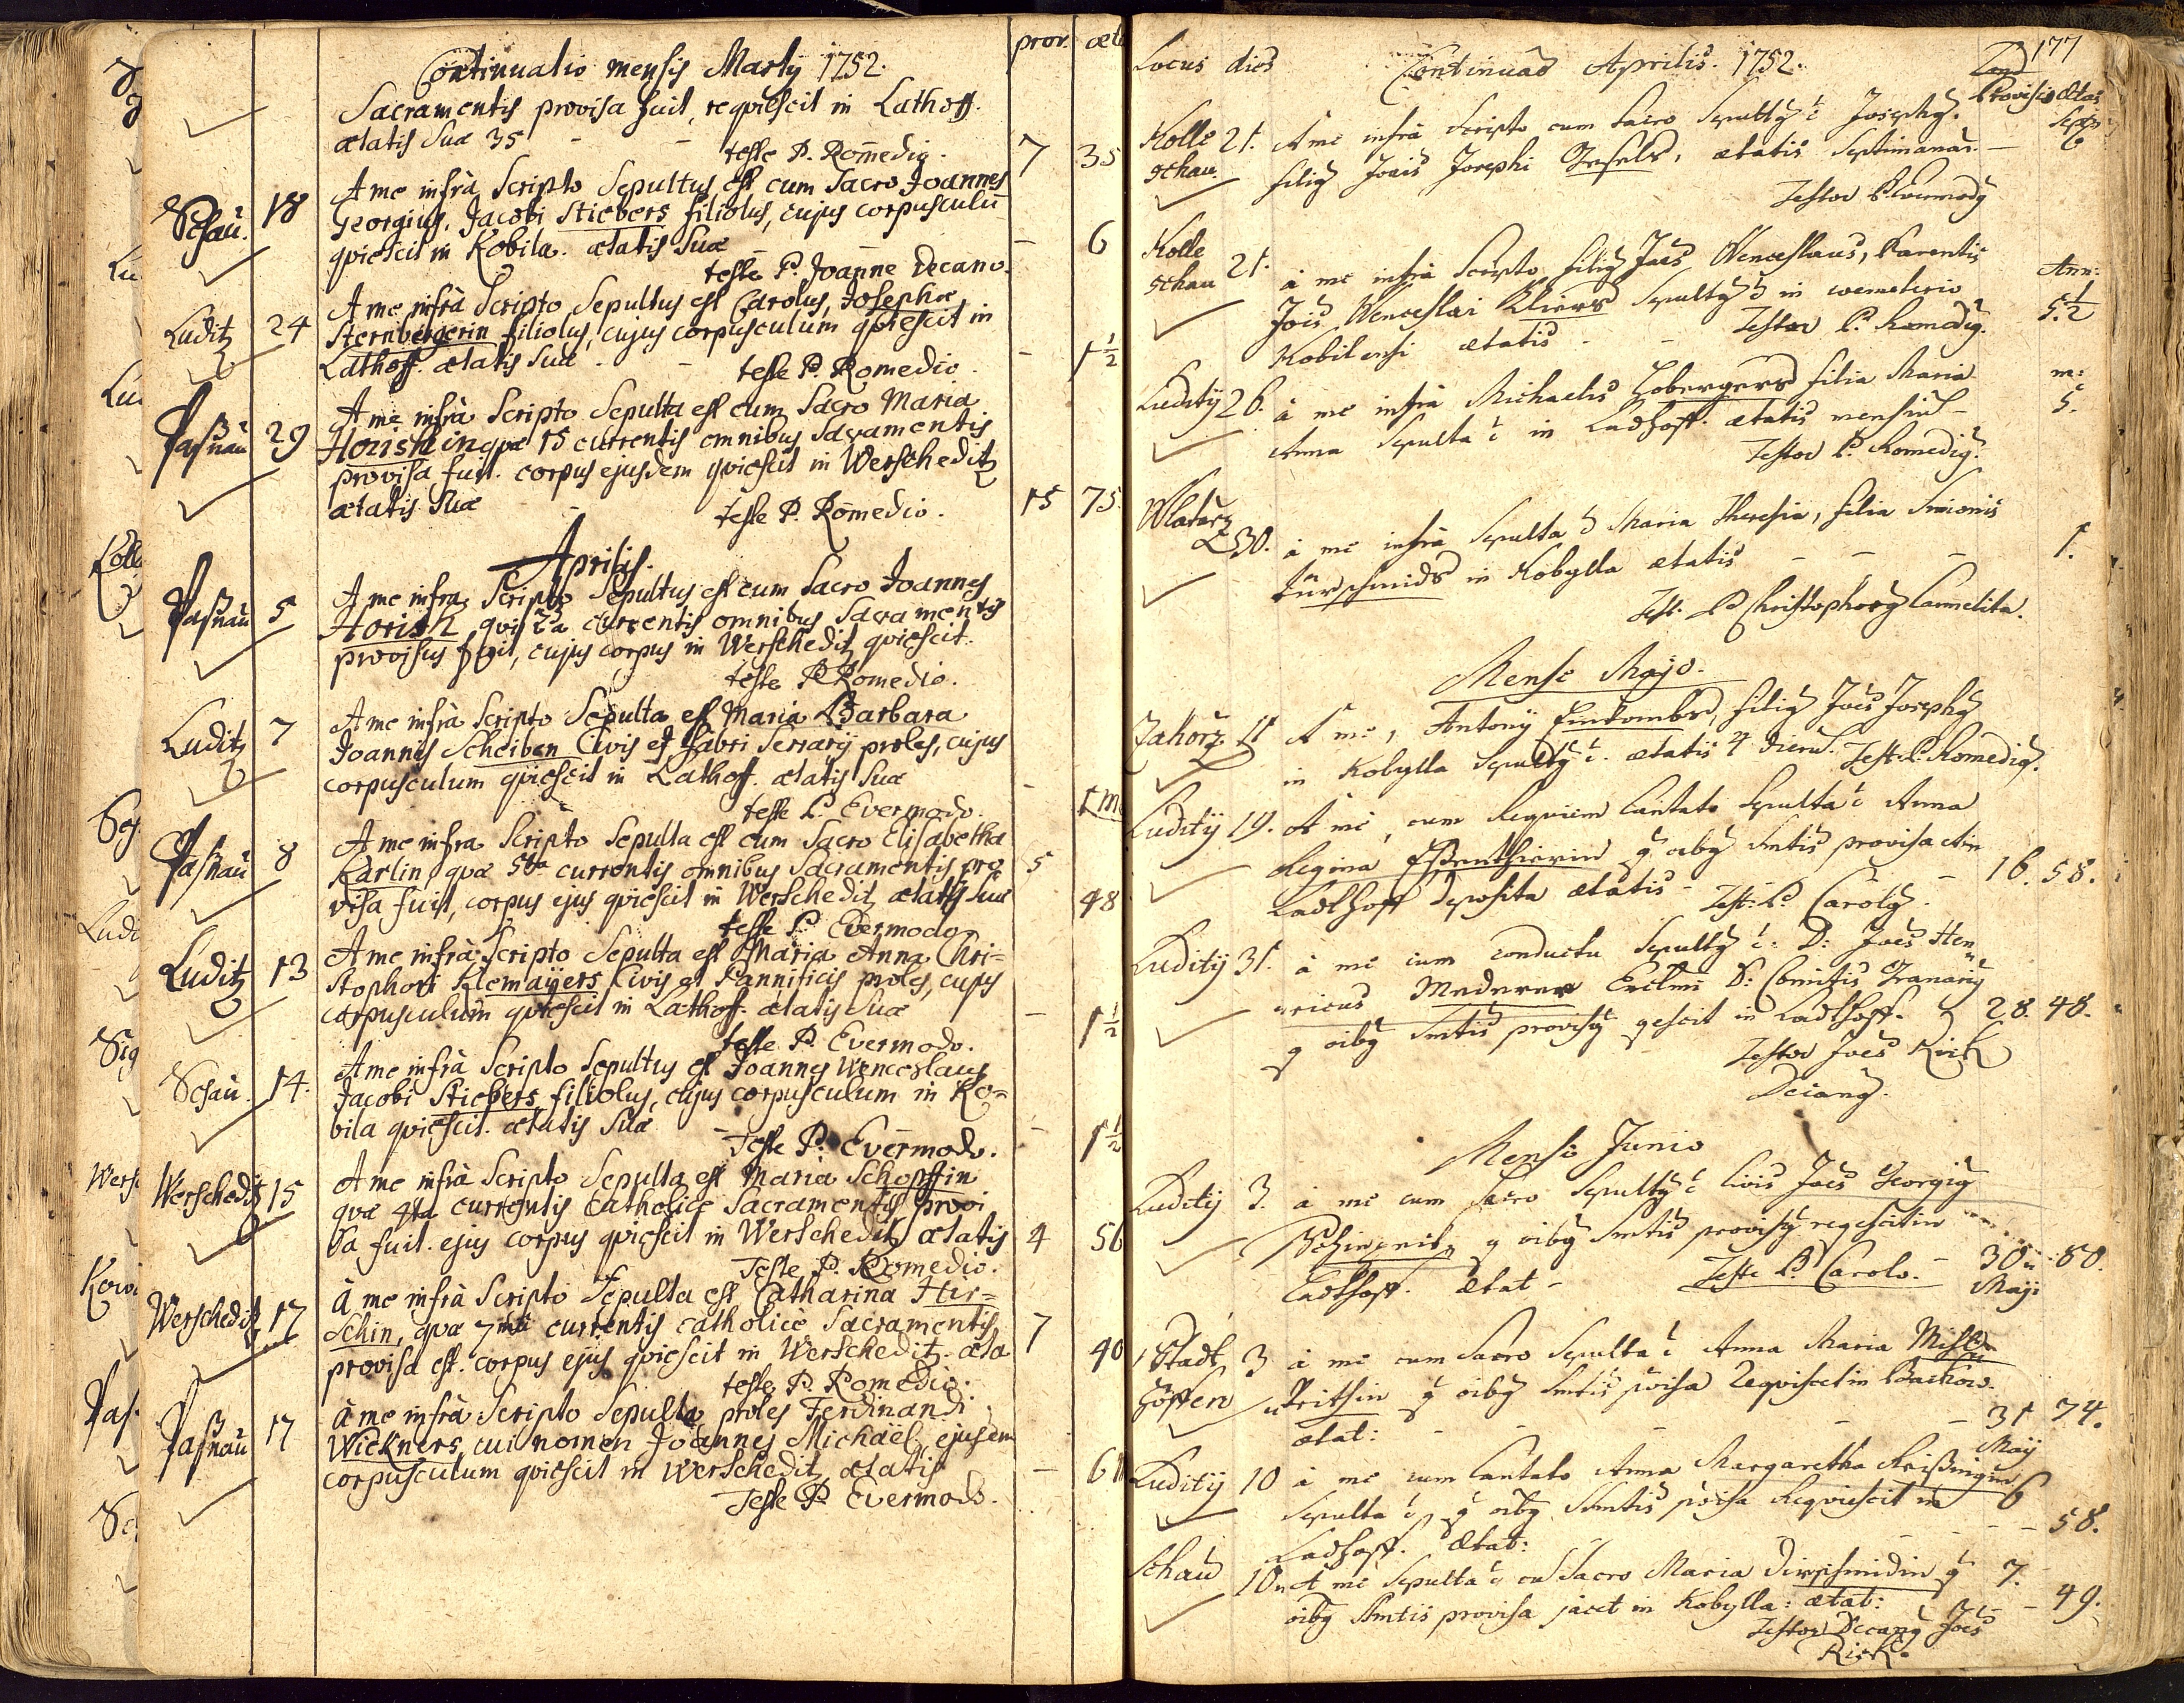 prov. æta
Continuatio mensis Martÿ 1752.
Sacramentis provisa fuit, reqviescit in Lathoff.
ætatis suæ 35 - - 7 35
teste P. Romedio.
Schau. 18 A me infrà Scripto Sepultus est cum Sacro Joannes
Georgius, Jacobi Stiebers filiolus, cujus corpusculū
qviescit in Kobila. ætatis suæ - - 6
teste P. Joanne Decano.
Luditz 24 A me infrà Scripto Sepultus est Carolus, Josephæ
Sternbergerin filiolus, cujus corpusculum qviescit in
Lathoff. ætatis suæ - - - 1½
teste P. Romedio.
Paßnau 29 A me infrà Scripto Sepulta est cum Sacro Maria
Horishin qvæ 15 currentis omnibus Sacramentis
provisa fuit. corpus ejusdem qviescit in Werscheditz
ætatis suæ - 15 75.
teste P. Romedio.
Aprilis.
Paßnau 5 A me infra Scripto Sepultus est cum Sacro Joannes
Horish, qvi 2a currentis omnibus Sacramentis
provisus fuit, cujus corpus in Werscheditz qviescit.
teste P. Romedio.
Luditz 7 A me infrà Scripto Sepulta est Maria Barbara
Joannis Scheiben Civis et fabri Serrarÿ proles, cujus
corpusculum qviescit in Lathoff. ætatis suæ - 1 m
teste P. Evermodo.
Paßnau 8 A me infra Scripto Sepulta est cum Sacro Elisabetha
Karlin, qvæ 5ta currentis omnibus Sacramentis pro 5
visa fuit, corpus ejus qviescit in Werscheditz ætatis suæ 48
teste P. Evermodo
Luditz 13 A me infrà Scripto Sepulta est Maria Anna Chri=
stophori Klemaÿers Civis et Pannificis proles, cujus
corpusculum qviescit in Lathoff. ætatis suæ - 1½
teste P. Evermodo.
Schau. 14. A me infrà Scripto Sepultus est Joannes Wenceslaus
Jacobi Stiebers filiolus, cujus corpusculum in Ko=
bila qviescit. ætatis suæ - - 1½
Teste P. Evermodo.
Werscheditz 15 A me infrà Scripto Sepulta est Maria Schopffin
qvæ 4ta currentis Catholicè Sacramentis provi
sa fuit. ejus corpus qviescit in Werscheditz ætatis 4 56
Teste P. Romedio.
Werscheditz 17 à me infrà Scripto Sepulta est Catharina Hir=
schin, qvæ 7ma currentis catholicè Sacramentis 7
provisa est. corpus ejus qviescit in Werscheditz. æta 40
teste P. Romedio.
Paßnau 17 à me infrà Scripto Sepulta proles Ferdinandi
Wickners, cui nomen Joannes Michael, ejusdem
corpusculum qviescit in Werscheditz, ætatis - 6
Teste P. Evermodo.
177
Locus dies Continuao Aprilis. 1752. Provisio Ætas
Kolle 21. A me infrà Scripto cum Sacro Sepultg ē Josephg.
schau. filig Jois Josephi, ætatis Septimanar. - 6
Testor P. Evermodg
Kolle
schau 21. à me infrà Scripto filig Joes Wenceslaus, Parentis Ann:
Jois Wenceslai Kliers Sepultg ē in coemeterio 5.½
Kobilensi ætatis - - Testor P. Romedig.
Luditÿ 26. à me infrà Michaelis Lobergers filia Maria m:
Anna Sepulta ē in Ladhoff. ætatis mensiū - 5.
Testor P. Romedig.
Wladarz 30. à me infrà Sepulta ē Maria Theresia, filia Simonis
Türschmids in Kobylla ætatis - - - 1.
Test. P. Christophorg Carmelita.
Mense Majo.
Zahorz 11 A me, Antonÿ, filig Joes Josephg
in Kobylla Sepultg ē. ætatis 4 dierū. Test. P. Romedig.
Luditÿ 19. A me, cum Reqviem Cantato Sepulta ē Anna
Regina q oibg Smtis provisa et in
Ladthoff deposita ætatis - - 16. 58.
Test: P. Carolg.
Luditÿ 31. à me cum conductu Sepultg ē. D: Joes Hen=
=ricus Mederer Exclmi D: Comitis Granarig
q oibg Smtis provisg qescit in Ladthoff. 28. 48.
Testor Joes Rick
Decang.
Mense Junio
Luditÿ 3. à me cum Sacro Sepultg ē Civis Joes Georgig
q oibg Smtis provisg reqescit in
Ladthoff. Ætat - Teste P. Carolo. - 30 80.
Maji
Stadt 3 à me cum Sacro Sepulta ē Anna Maria
höffen q oibg Smtis p̄visa Reqviescit in
ætat: - - - - 31 74.
Maÿ
Luditÿ 10 à me cum Cantato Anna Margaretha Reißingin
Sepulta ē, q oibg Smtis p̄visa Reqviescit in 6
Ladhoff. Ætat: - - - - 58.
Schau 10 A me Sepulta ē cū Sacro Maria Dirschmidin q 7.
oibg Smtis provisa jacet in Kobylla: ætat: - - 49.
Testor Decang Joes
Rick.